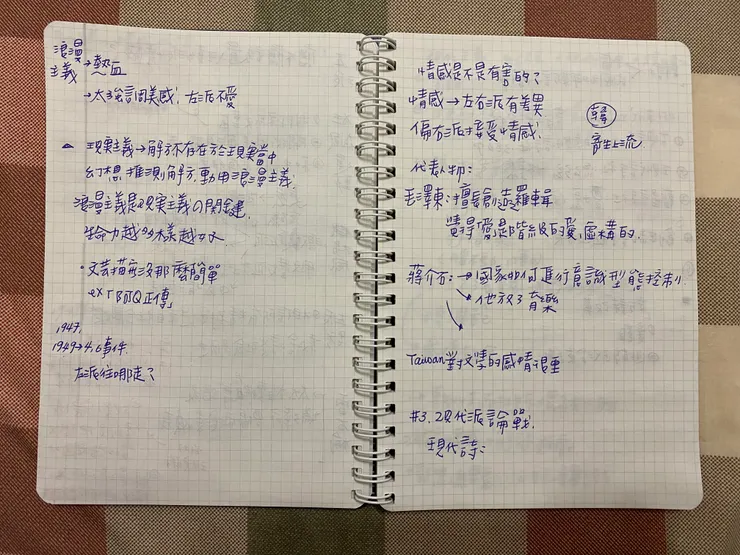 浪漫
主義→熱血
→太強調美感,左派不愛
△ 現實主義→解方不存在於現實當中
幻想推測解方,動用浪漫主義.
浪漫主義是現實主義の関鍵,
生命力越多樣越好.
•文芸描寫沒那麼簡單
ex「阿Q正傳」
1947.
1949→4,6事件.
左派往哪走?
情感是不是有害的?
情感→左右派有差異
偏右派接受情感.
韓
寄生上流
代表人物:
毛澤東:擅長創造邏輯
覺得愛是階級的愛,虛構的.
蔣介石:→國家如何進行意識型態控制.
他放了音樂
Taiwan對文學的感情很重
#3.現代派論戰.
現代詩: